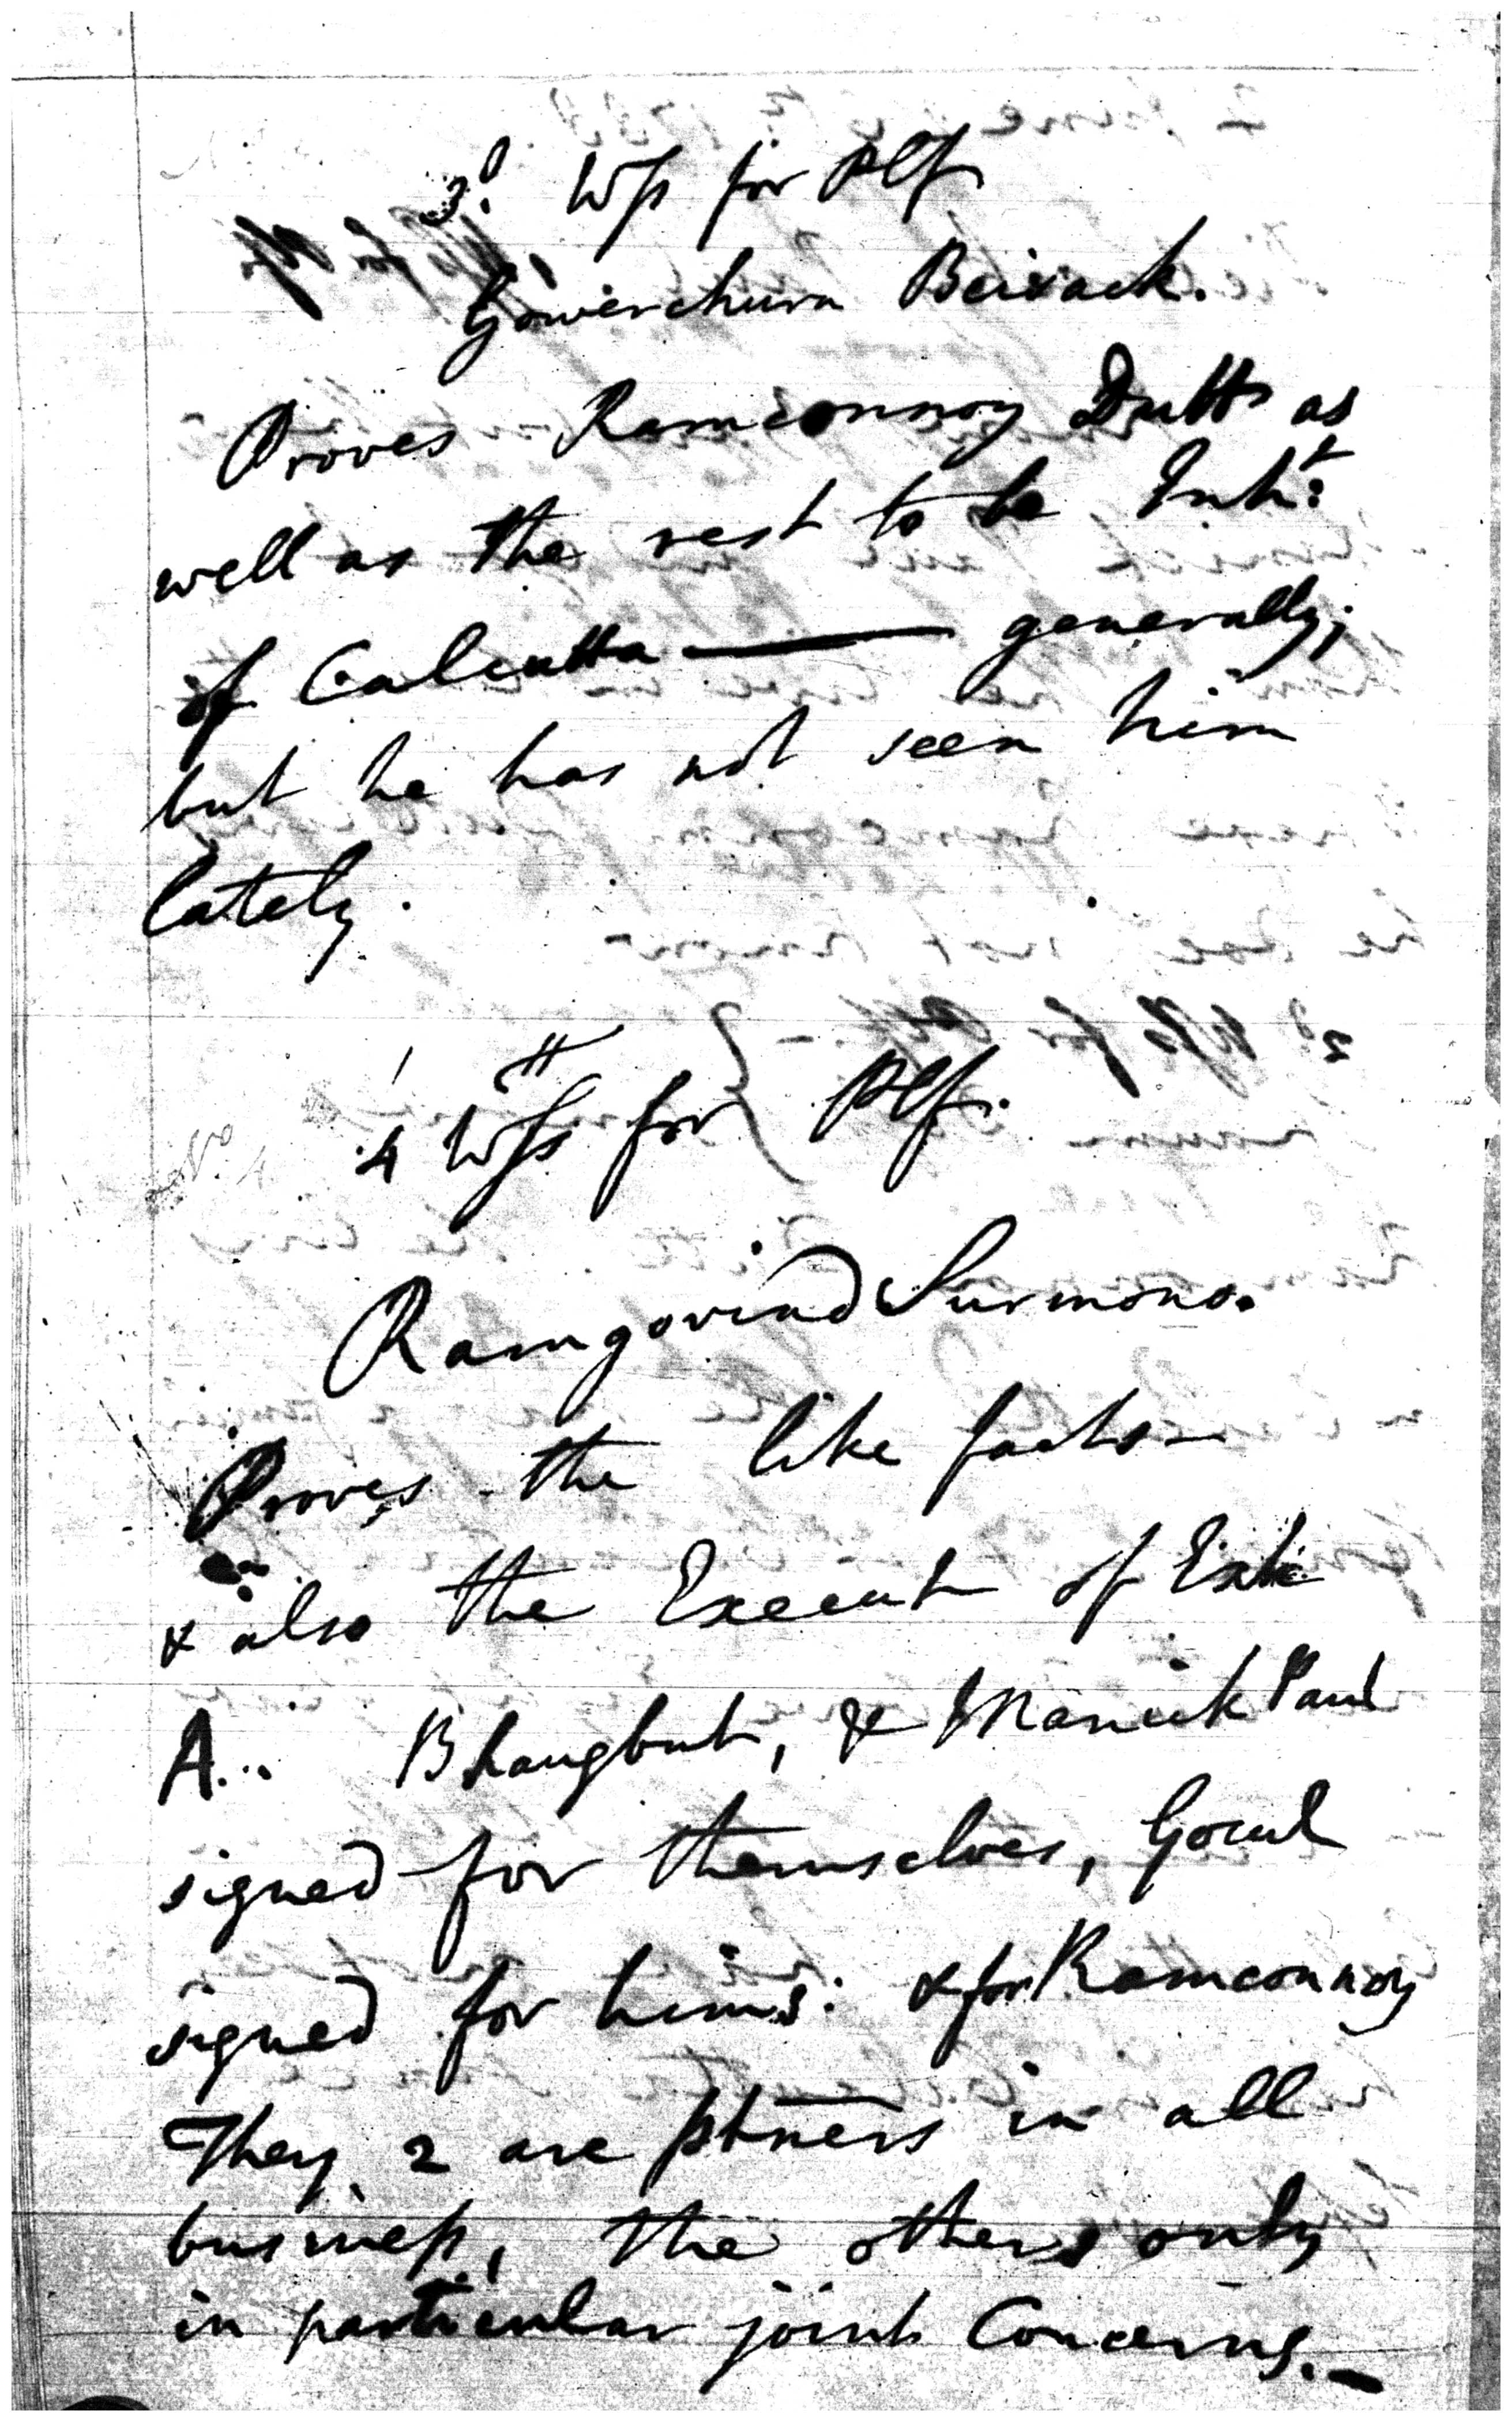 3d Wss for Plf
Gowerchurn Beisack.
Proves Ramconnoy Dutt as
well as the rest to be Inht:
of Calcutta — generally;
but he has not seen him
lately.
4th Wss for Plf.
Ramgovind Surmono.
Proves the like facts—
& also the Execut of Exh
A... Bhaugbut, & Manick Paul
signed for themselves, Gocul
signed for hims: & for Ramconnoy
They 2 are ptners in all
business, the others only
in particular joint Concerns.—